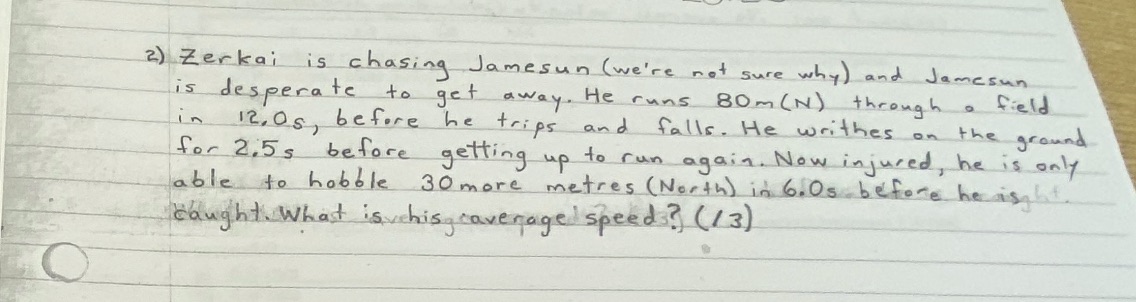 2) Zerkai is chasing Jamesun (we're not sure why) and Jamesun
is desperate to get away. He runs 80m (N) through a field
in 12.0s, before he trips and falls. He writhes on the ground
for 2.5s before getting up to run again. Now injured, he is only
able to hobble 30 more metres (North) in 6.0s before he is
caught. What is his average speed? (/3)